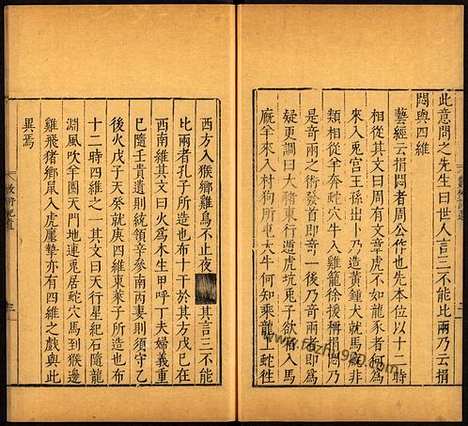 此意問之先生曰世人言三不能比兩乃云捐
悶與四維
藝經云捐悶者周公作也先本位以十二時
相從其文曰同有文章虎不如龍豕者何為
來入兔宮王孫出卜乃造黃鍾犬就馬廄非
類相從羊奔蛇穴牛入雞籠徐援稱捐悶乃
是奇兩之術發首即奇一後乃奇兩者即其
疑更調曰大豬東行遁虎坑兎子欲宿入馬
廄羊來入村狗所屯大牛何知乘龍上蛇往
西方入猴鄉雞鳥不止夜 其言三不能
比兩者孔子所造也布十干於其方戊己在
西南維其文曰火為木生甲呼丁夫婦義重
巳隨壬貴遺則統領辛參南丙妻則須守乙
後火戊子天癸就庚四維東萊子所造也布
十二時四維之一其文曰天行星紀石隨龍
淵風吹羊圈天門地連兎居蛇穴馬到猴邊
雞飛豬鄉鼠入虎廛摯亦有四維之戲與此
異焉
www.fozhu920.com